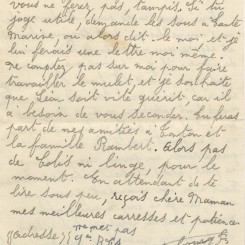 vous ne ferez pas, tampis. Si tu
juge utile, demande les sous à tante
Marise, ou alors dit. le moi et je
lui ferait une lettre moi même.
ne comptez pas sur moi pour faire
travailler le mulet, et je souhaite
que Léon soit vite guérit, car il
a besoin de vous seconder. Tu feras
part de mes amitiés à Gaston et
la famille Rambert. Alors pas
de Colis ni linge, pour le
moment. En attendant de te
lire sous peu, reçois chère Maman
mes meilleures carresses et patience
(adresse) ne met pas